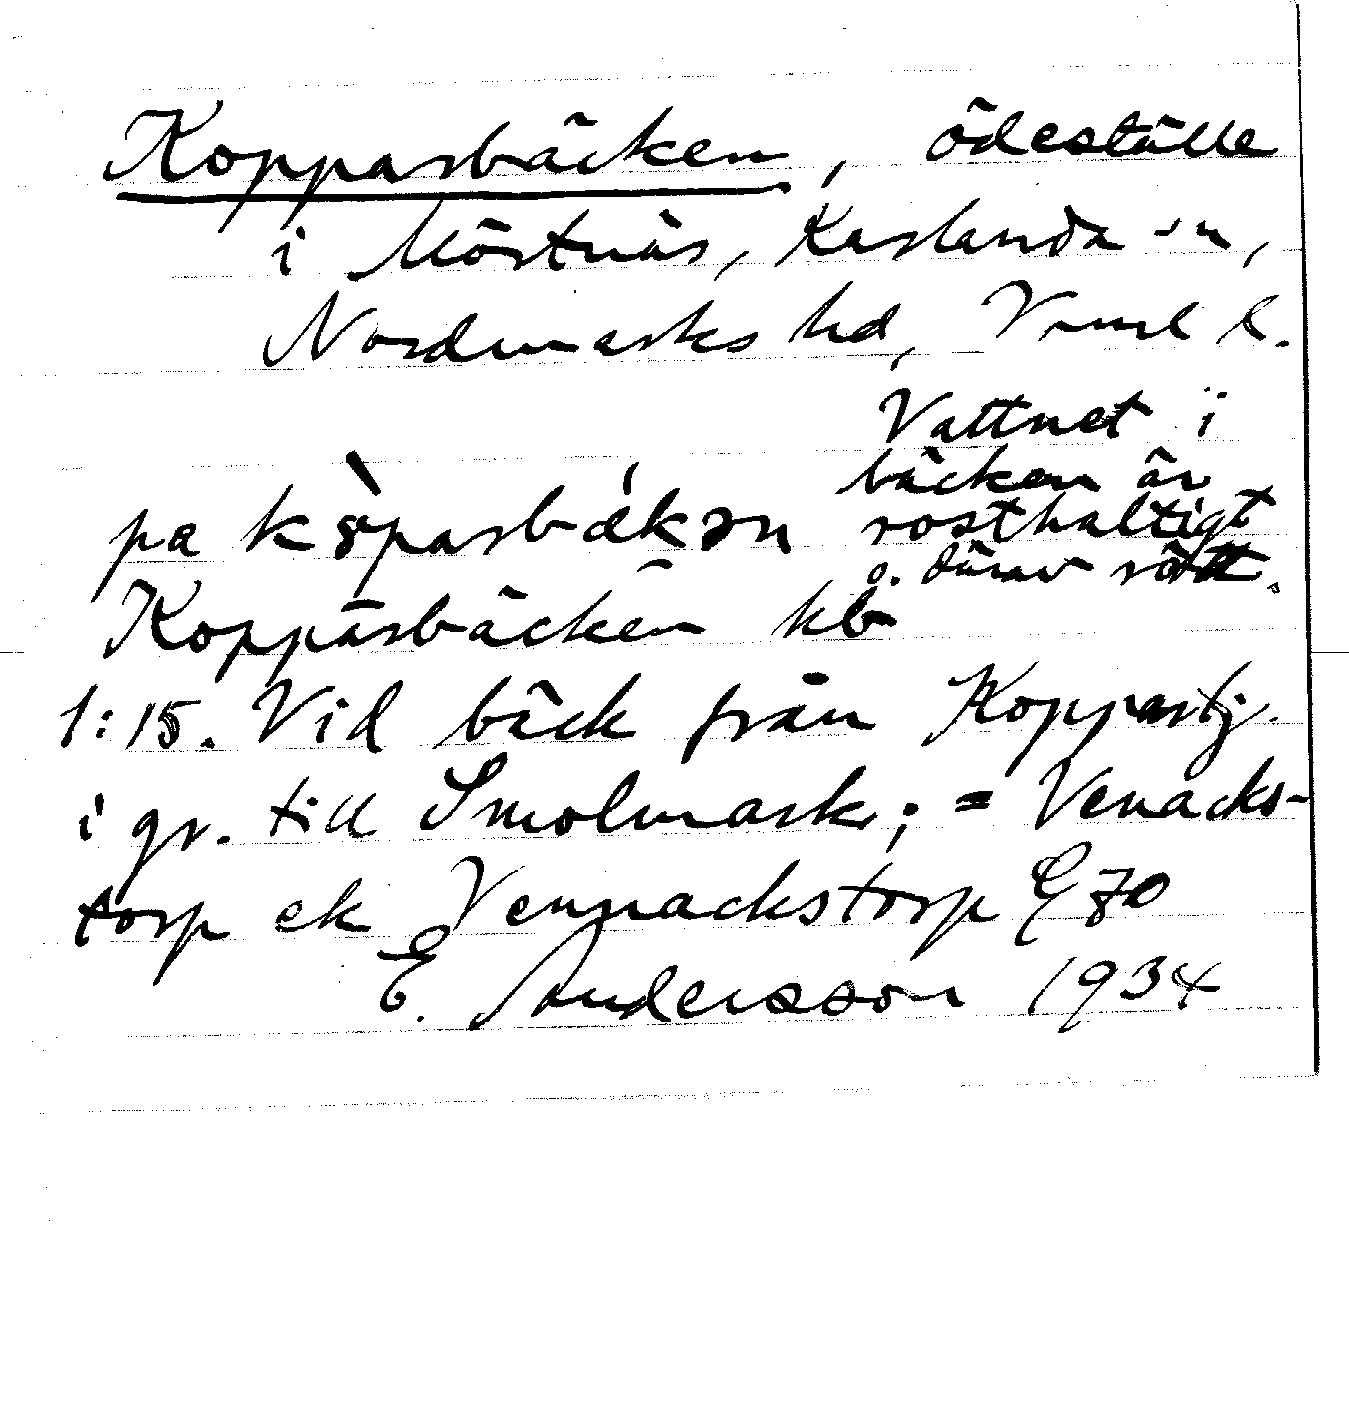 Kopparbäcken, ödeställe
i Mörtnäs, Karlanda sn,
Nordmarks hd, Vrml l.
Vattnet i
bäcken är
rosthaltigt
o. därav rött.
pa kòparbǽkən
Kopparbäcken kb
1:15. Vid bäck från Koppartj.
i gr. till Smolmark; = Venacks-
torp ek Vennackstorp E 70
E. Andersson 1934